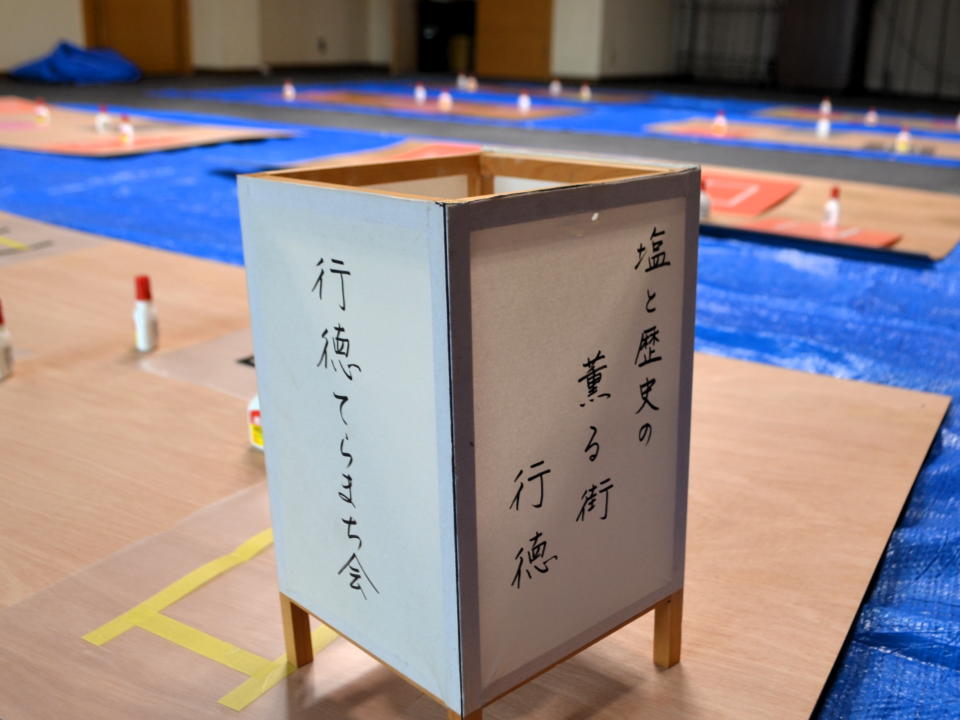 行徳てらまち会
塩と歴史の
薫る街
行徳